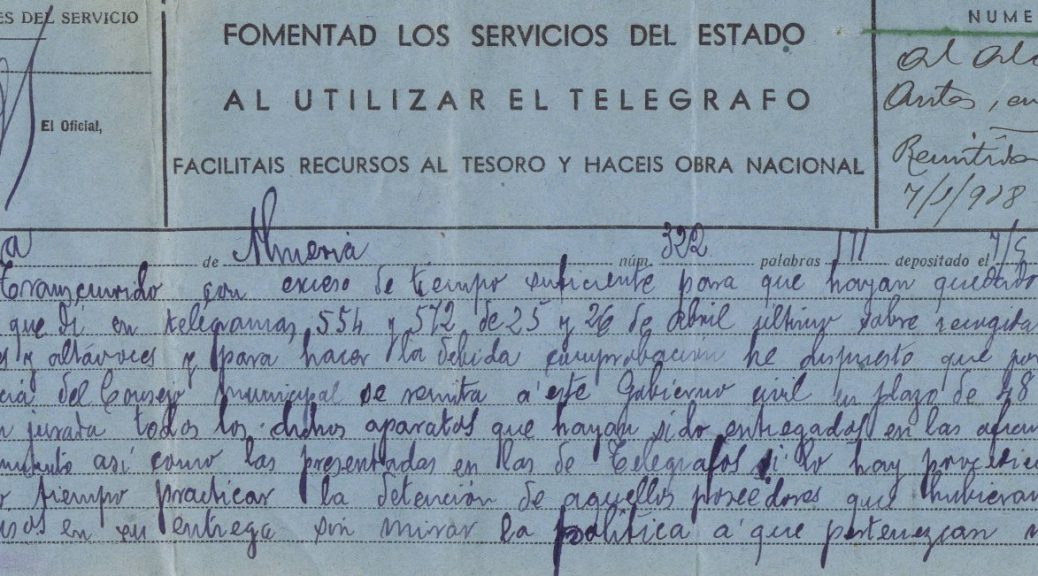 ES DEL SERVICIO
El Oficial,
FOMENTAD LOS SERVICIOS DEL ESTADO
AL UTILIZAR EL TELEGRAFO
FACILITAIS RECURSOS AL TESORO Y HACEIS OBRA NACIONAL
NUME
Al Alc
Antas, en
Remitida
7/5/938
a de Almeria núm. 322 palabras 171 depositado el 7/5
Transcurrido con exceso de tiempo suficiente para que hayan quedado
que di en telegramas 554 y 572 de 25 y 26 de Abril último sobre recogida
es y altavoces y para hacer la debida comprobación he dispuesto que por
cia del Consejo municipal se remita a este Gobierno civil en plazo de 48
n jurada todos los dichos aparatos que hayan sido entregados en las oficin
así como las presentadas en las de Telegrafos si lo hay
o tiempo practicar la detención de aquellos poseedores que hubieran
sos en su entrega sin mirar la politica a que pertenezcan